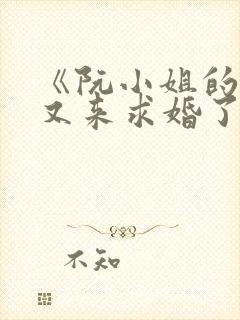 《阮小姐的
又来求婚了
不知